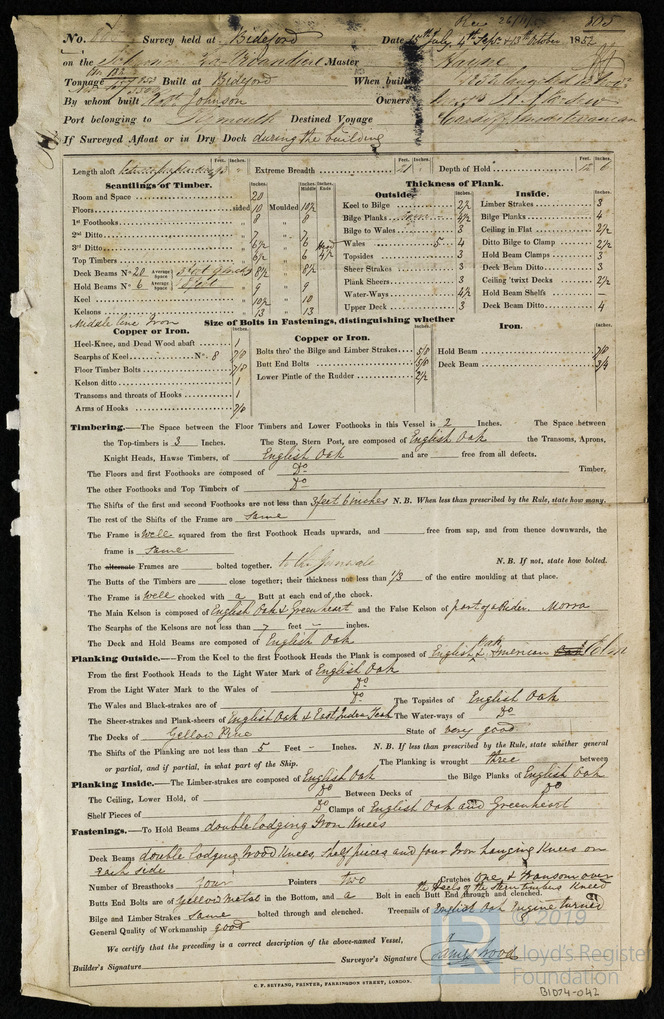 Rec 26/10/52 805
No. Survey held at Bideford Date 15th July, 4th Sept & 13th October 1852
on the Schooner Master Hayne
Tonnage Built at Bideford When built 1852 launched
By whom built Robt Johnson Owners
Port belonging to Plymouth Destined Voyage Cardiff Mediterranean
If Surveyed Afloat or in Dry Dock during the building
Length aloft Feet. Inches. Extreme Breadth Feet. Inches. 21 Depth of Hold Feet. Inches. 12 6
Scantlings of Timber. Inches. Inches. Middle Inches. Ends
Room and Space 20
Floors sided 10 Moulded 10½
1st Foothooks " 8 " 8
2nd Ditto " 7 " 7
3rd Ditto " 6½ " 6
Top Timbers " 6½ " 6 4½
Deck Beams No. 20 Average Space 8½ " 8½
Hold Beams No. 6 Average Space 9 " 9
Keel " 10½ " 10
Kelsons " 13 " 13
Middle line Iron
Thickness of Plank.
Outside. Inches.
Keel to Bilge 2½
Bilge Planks
Bilge to Wales 3
Wales 5 - 4
Topsides 3
Sheer Strakes 3
Plank Sheers 3
Water-Ways 4½
Upper Deck 3
Inside. Inches.
Limber Strakes 3
Bilge Planks 4
Ceiling in Flat 2½
Ditto Bilge to Clamp 2½
Hold Beam Clamps 3
Deck Beam Ditto 3
Ceiling 'twixt Decks 2½
Hold Beam Shelfs –
Deck Beam Ditto 4
Size of Bolts in Fastenings, distinguishing whether
Copper or Iron. Inches.
Heel-Knee, and Dead Wood abaft 1
Scarphs of Keel No. 8 7/8
Floor Timber Bolts 7/8
Kelson ditto 1
Transoms and throats of Hooks 1
Arms of Hooks 7/8
Copper or Iron. Inches.
Bolts thro' the Bilge and Limber Strakes 5/8
Butt End Bolts 5/8
Lower Pintle of the Rudder 2½
Iron. Inches.
Hold Beam 7/8
Deck Beam 3/4
Timbering.—The Space between the Floor Timbers and Lower Foothooks in this Vessel is 2 Inches. The Space between
the Top-timbers is 3 Inches. The Stem, Stern Post, are composed of English Oak the Transoms, Aprons,
Knight Heads, Hawse Timbers, of English Oak and are free from all defects.
The Floors and first Foothooks are composed of Do Timber,
The other Foothooks and Top Timbers of Do
The Shifts of the first and second Foothooks are not less than 3 feet 6 inches N. B. When less than prescribed by the Rule, state how many.
The rest of the Shifts of the Frame are same
The Frame is well squared from the first Foothook Heads upwards, and free from sap, and from thence downwards, the
frame is same
The alternate Frames are bolted together. to the N. B. If not, state how bolted.
The Butts of the Timbers are close together; their thickness not less than 1/3 of the entire moulding at that place.
The Frame is well chocked with a Butt at each end of the chock.
The Main Kelson is composed of English Oak & Greenheart and the False Kelson of part of a Rider. Morra
The Scarphs of the Kelsons are not less than 7 feet – inches.
The Deck and Hold Beams are composed of English Oak
Planking Outside.—From the Keel to the first Foothook Heads the Plank is composed of English Oak & American Elm
From the first Foothook Heads to the Light Water Mark of English Oak
From the Light Water Mark to the Wales of Do
The Wales and Black-strakes are of Do The Topsides of English Oak
The Sheer-strakes and Plank-sheers of English Oak & East India Teak The Water-ways of Do
The Decks of Yellow Pine State of very good
The Shifts of the Planking are not less than 5 Feet – Inches. N. B. If less than prescribed by the Rule, state whether general
or partial, and if partial, in what part of the Ship. The Planking is wrought three between
Planking Inside.—The Limber-strakes are composed of English Oak the Bilge Planks of English Oak
The Ceiling, Lower Hold, of Do Between Decks of Do
Shelf Pieces of Do Clamps of English Oak and Greenheart
Fastenings.—To Hold Beams double lodging Iron Knees
Deck Beams double lodging Wood Knees, Shelf pieces and four Iron hanging Knees on
each side
Number of Breasthooks four Pointers two Crutches One & Transom over
the Heels of the Stern timbers Kneed
Butts End Bolts are of Yellow Metal in the Bottom, and a Bolt in each Butt End through and clenched.
Bilge and Limber Strakes same bolted through and clenched. Treenails of English Oak Engine turned
General Quality of Workmanship good
We certify that the preceding is a correct description of the above-named Vessel,
Builder's Signature Surveyor's Signature James Wood
C. F. SEYFANG, PRINTER, FARRINGDON STREET, LONDON.
© 2019
Lloyd's Register
Foundation
BID74-042